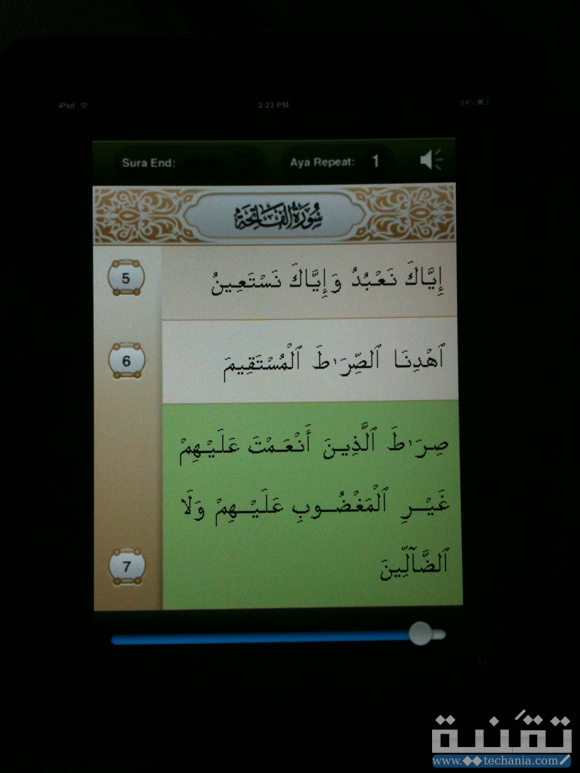 iPad 2:23 PM 84%
Sura End: Aya Repeat: 1
سُورَةُ الفَاتِحَةِ
5 إِيَّاكَ نَعْبُدُ وَإِيَّاكَ نَسْتَعِينُ
6 ٱهْدِنَا ٱلصِّرَٰطَ ٱلْمُسْتَقِيمَ
صِرَٰطَ ٱلَّذِينَ أَنْعَمْتَ عَلَيْهِمْ
غَيْرِ ٱلْمَغْضُوبِ عَلَيْهِمْ وَلَا
7 ٱلضَّآلِّينَ
تقنية
www.techania.com